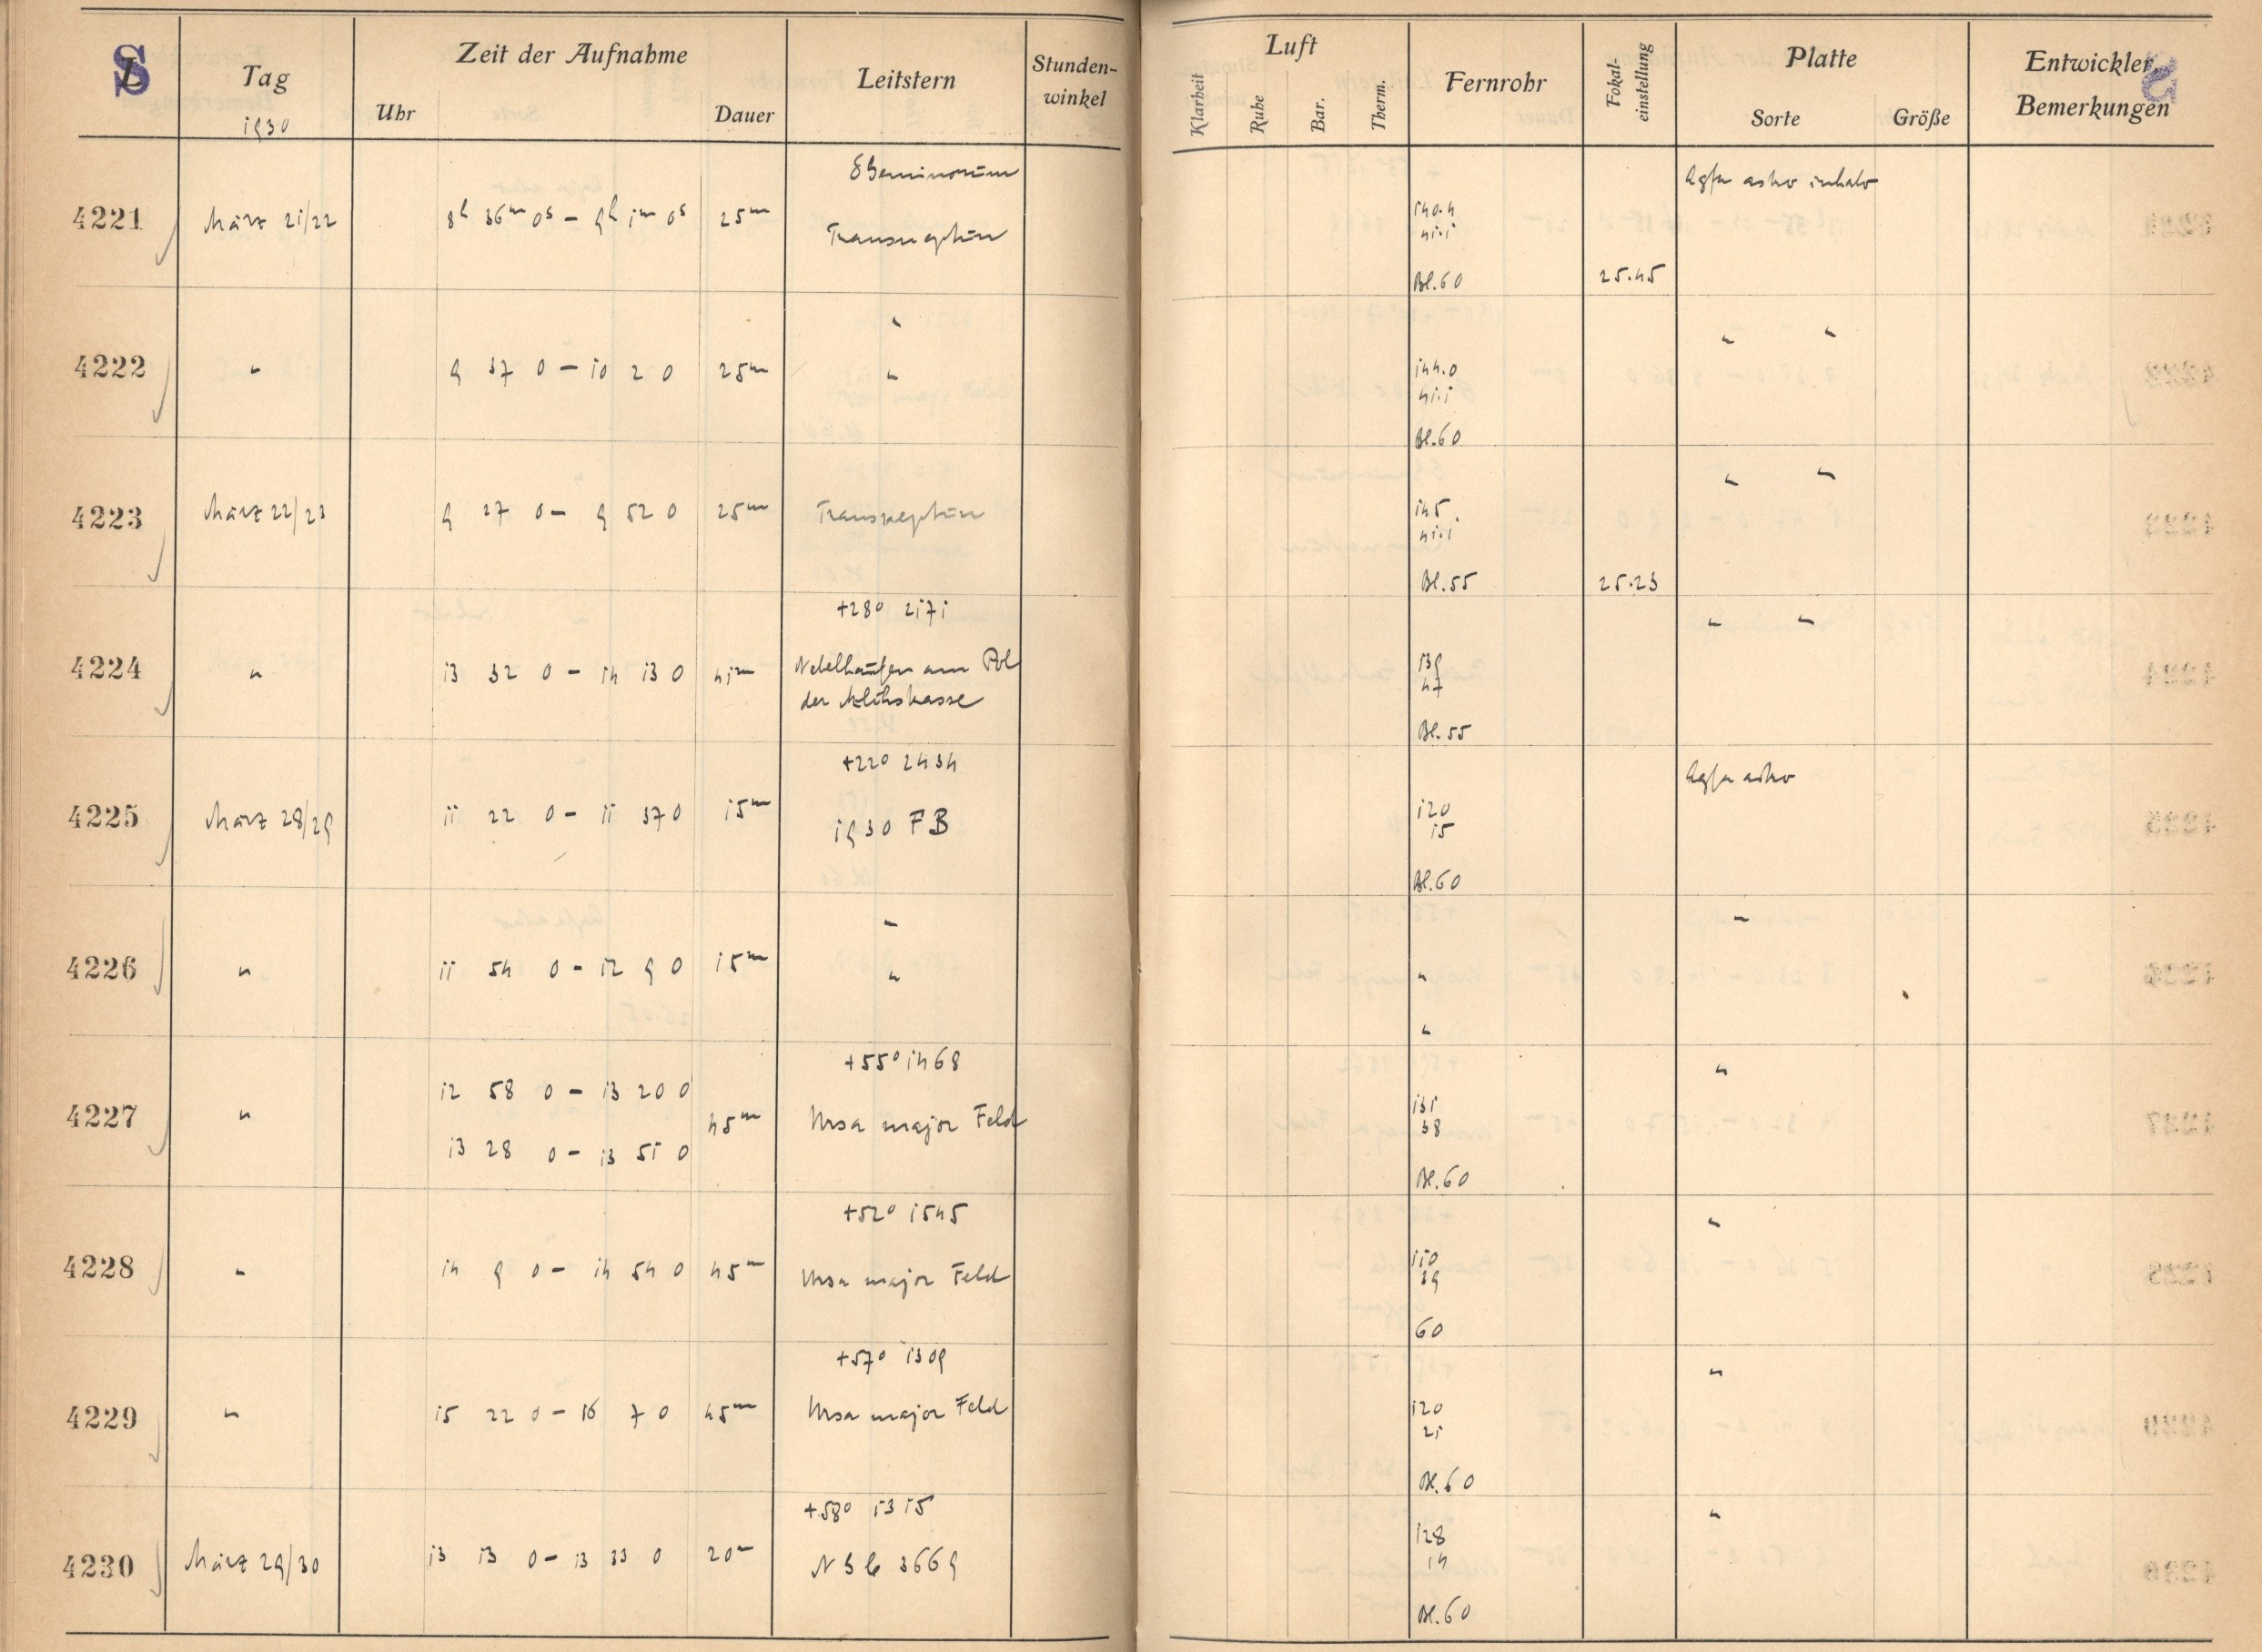 S
Tag
1930
Zeit der Aufnahme
Uhr
Dauer
Leitstern
Stunden-
winkel
Luft
Klarheit
Ruhe
Bar.
Therm.
Fernrohr
Fokal-
einstellung
Platte
Sorte
Größe
Entwickler,
Bemerkungen
δ Geminorum
Agfa astro inhalo
4221 März 21/22 8h 36m 0s – 9h 1m 0s 25m Transneptun 140.4
41.1
Bl. 60 25.45
"
" "
4222 " 9 37 0 – 10 2 0 25m " 144.0
41.1
Bl. 60
" "
4223 März 22/23 9 27 0 – 9 52 0 25m Transneptun 145
41.1
Bl. 55 25.23
+28° 2171
" "
4224 " 13 32 0 – 14 13 0 41m Nebelhaufen am Pol 139
der Milchstrasse 47
Bl. 55
+22° 2434
Agfa astro
4225 März 28/29 11 22 0 – 11 37 0 15m 1930 FB 120
15
Bl. 60
"
"
4226 " 11 54 0 – 12 9 0 15m " "
"
+55° 1468
"
12 58 0 – 13 20 0
4227 " 45m Ursa major Feld 131
38
13 28 0 – 13 51 0
Bl. 60
+52° 1545
"
4228 " 14 9 0 – 14 54 0 45m Ursa major Feld 110
39
60
+57° 1309
"
4229 " 15 22 0 – 16 7 0 45m Ursa major Feld 120
21
Bl. 60
+58° 1315
"
4230 März 29/30 13 13 0 – 13 33 0 20m NGC 3669 128
14
Bl. 60